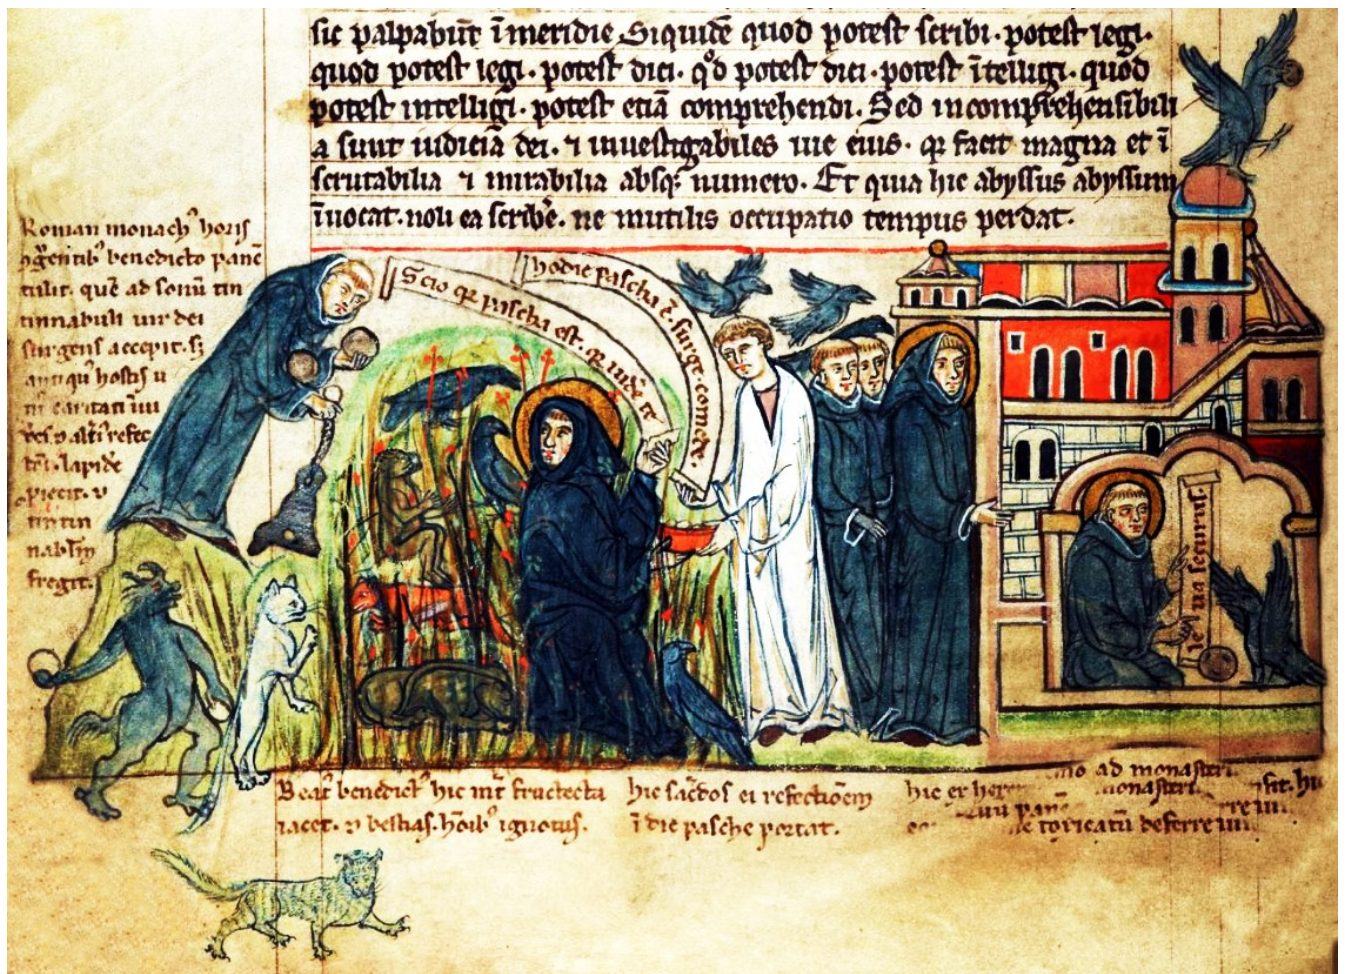 sic palpabūt ī meridie Siquidē quod potest scribi · potest legi ·
quod potest legi · potest dici · qd potest dici · potest ītelligi · quod
potest intelligi · potest etiā comprehendi · Sed incomprehensibili
a sunt iudicia dei · ⁊ inuestigabiles uie eius · qr facit magna et ī
scrutabilia ⁊ mirabilia absq numero · Et quia hic abyssus abyssum
īuocat · noli ea scribē · ne inutilis occupatio tempus perdat ·
Roman monach horis
benedicto panē
tulit · quē ad sonū tin
tinnabuli uir dei
surgens accepit · sȝ
antiqu hostis
caritati
refec
lapidē
tintin
fregit ·
Scio qr pascha est · qr uidē te
hodie pascha ē · surge · comede ·
secuntur
Beat benedict hic int fructecta
iacet · bestias · ignotus ·
hic sacdos ei refectionem
ī die pasche portat ·
hic
ad
deferre